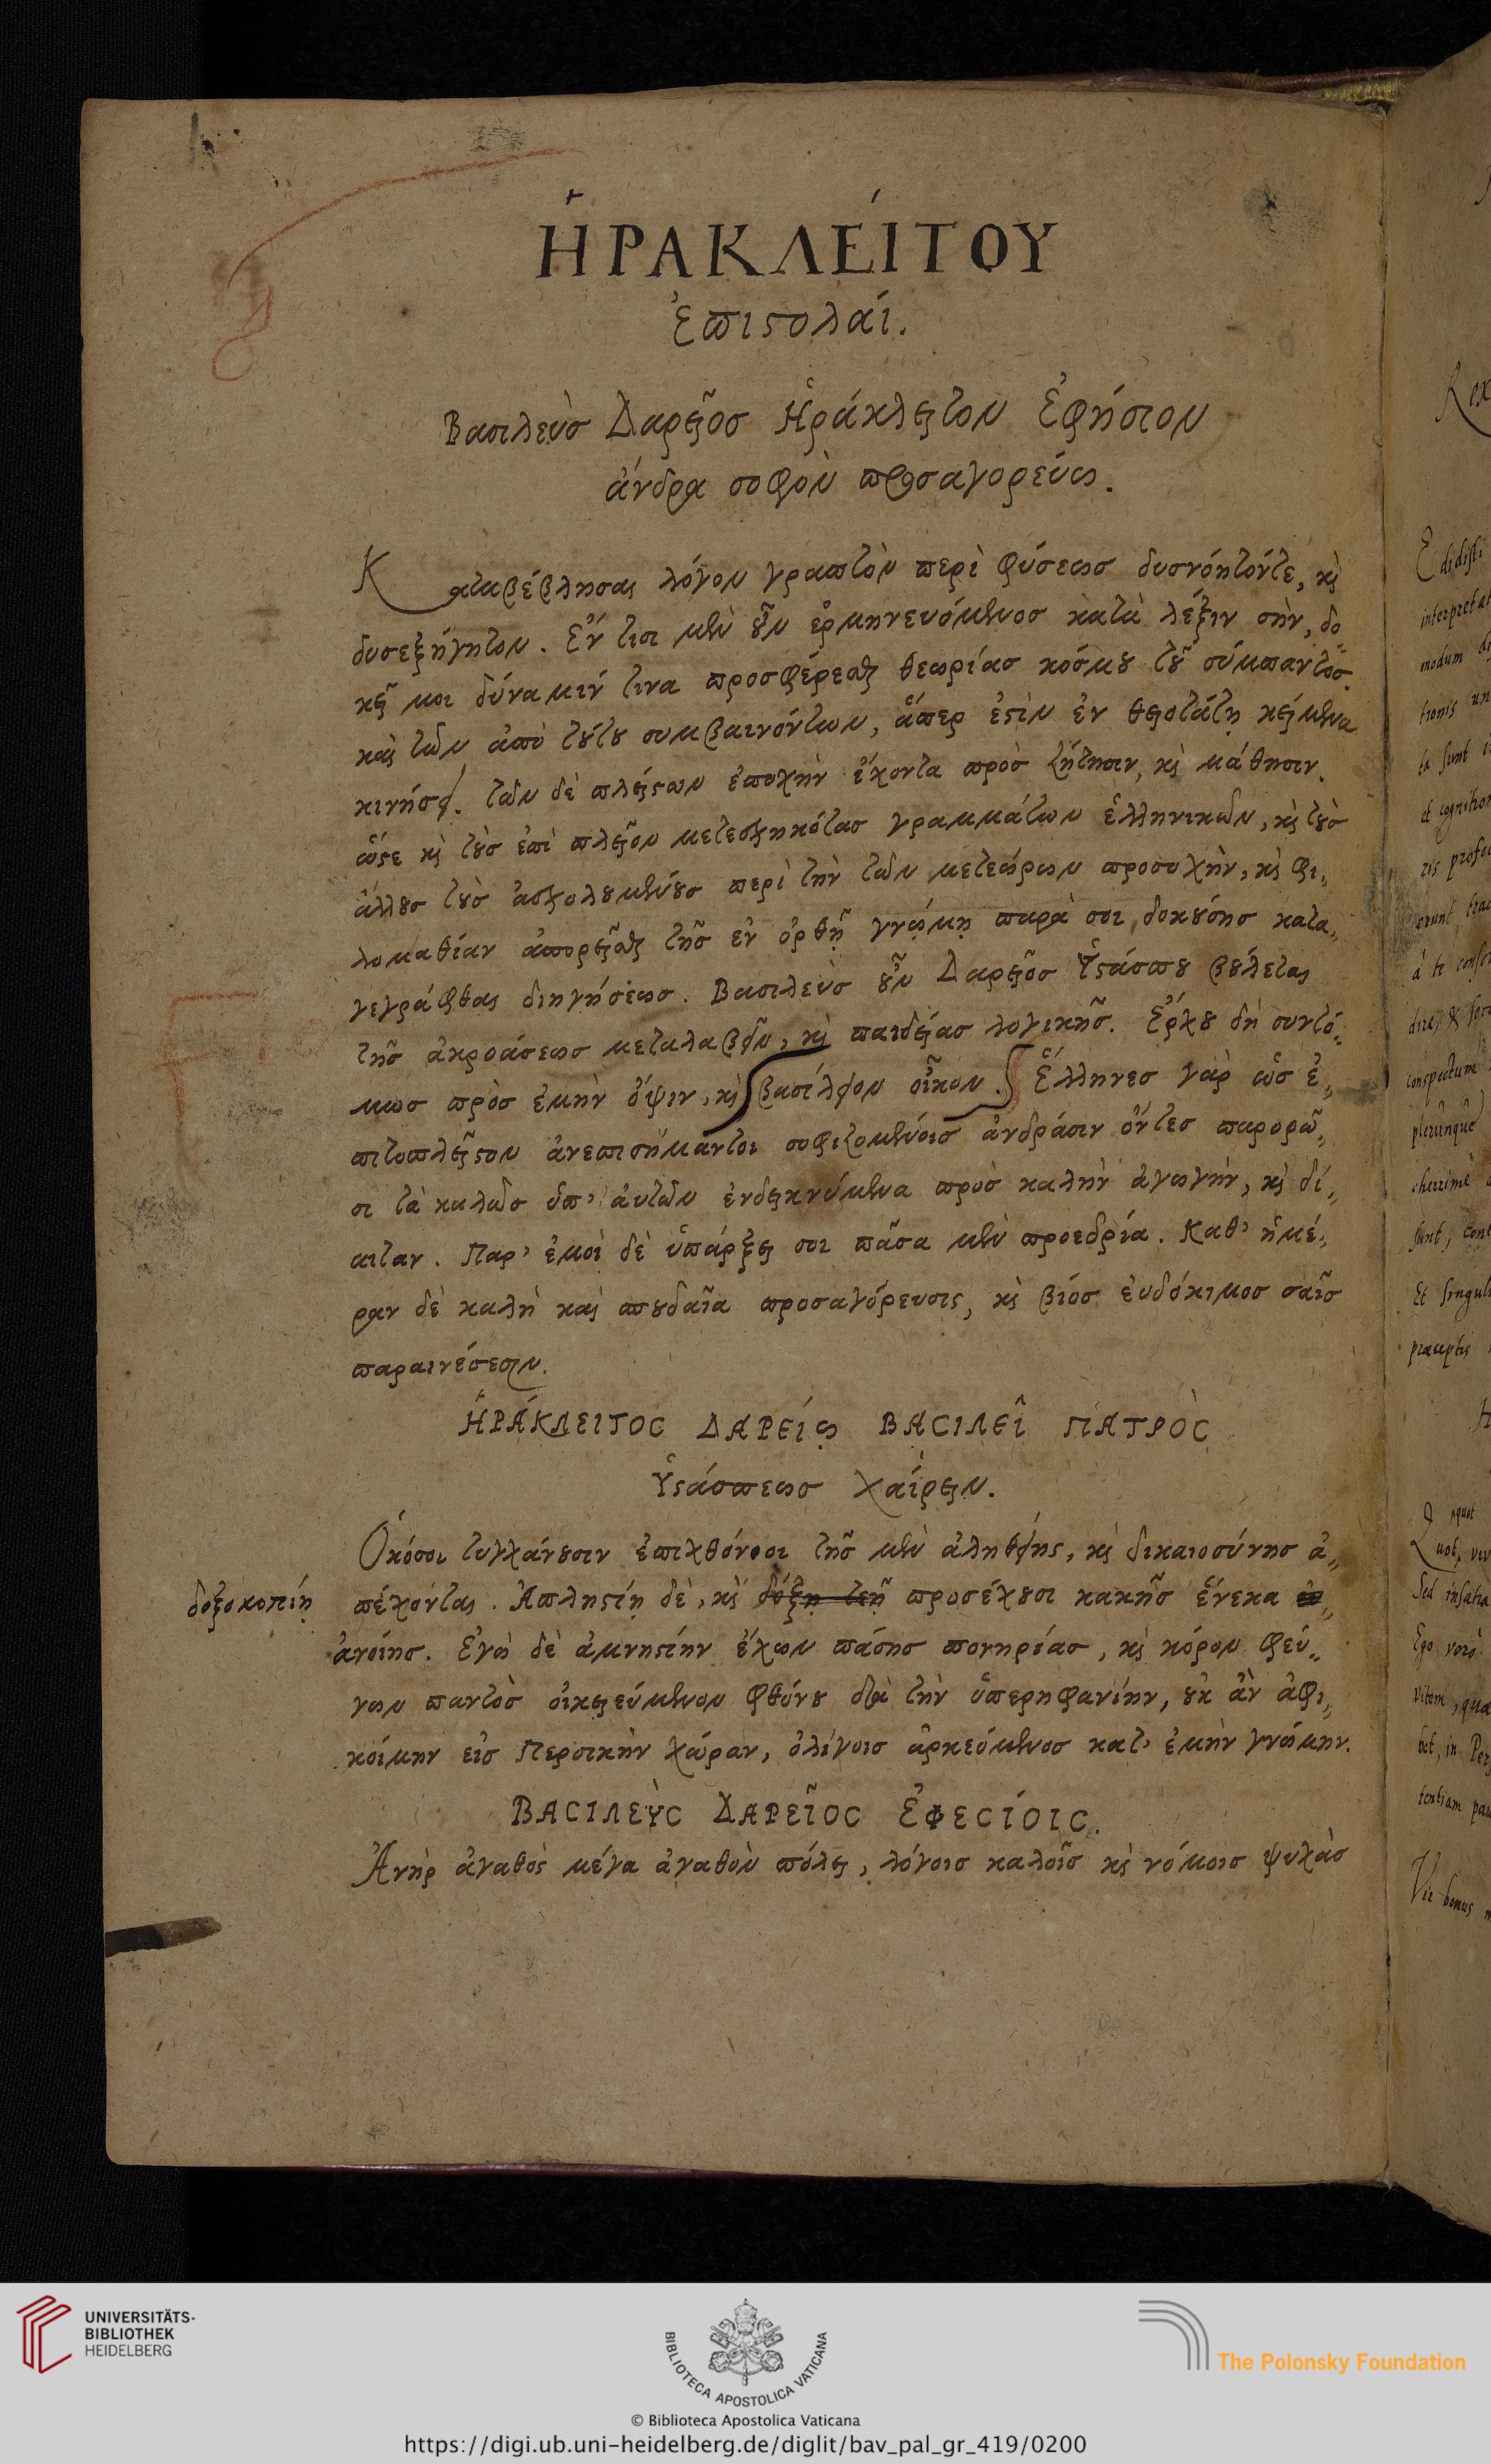 ἩΡΑΚΛΕΊΤΟΥ
Ἐπιϛολαί.
Βασιλεὺσ Δαρεῖοσ Ἡράκλειτον Ἐφήσιον
ἄνδρα σοφὸν προσαγορεύω.
Καταβέβλησαι λόγον γραπτὸν περὶ φύσεωσ δυσνόητόντε, κὶ
δυσεξήγητον. Ἔν τισι μὲν οὖν ἑρμηνευόμενοσ κατὰ λέξιν σὴν, δο
κεῖ μοι δύναμιν τινα προσφέρεσθαι θεωρίασ κόσμου τοῦ σύμπαντοσ
καὶ τῶν ἀπὸ τούτου συμβαινόντων, ἅπερ ἐϛὶν ἐν θειοτάτῃ κείμενα
κινήσει. τῶν δὲ πλείϛων ἐποχὴν ἔχοντα πρὸσ ζήτησιν, κὶ μάθησιν.
ὥϛε κὶ τοὺσ ἐπὶ πλεῖον μετεσχηκότασ γραμμάτων ἑλληνικῶν, κὶ τοὺσ
ἄλλουσ τοὺσ ἀσχολουμένουσ περὶ τὴν τῶν μετεώρων προσοχὴν, κὶ φι„
λομαθίαν ἀπορεῖσθαι τῆσ ἐν ὀρθῇ γνώμῃ παρὰ σοι δοκούσησ κατα„
γεγράφθαι διηγήσεωσ. Βασιλεὺσ οὖν Δαρεῖοσ Ὑϛάσπου βούλεται
τῆσ ἀκροάσεωσ μεταλαβεῖν, κὶ παιδείασ λογικῆσ. Ἔρχου δὴ συντό„
μωσ πρὸσ ἐμὴν ὄψιν, κὶ βασίλειον οἶκον. Ἕλληνεσ γὰρ ὡσ ἐ„
πιτοπλεῖϛον ἀνεπισήμαντοι σοφιζομένοισ ἀνδράσιν ὄντεσ παρορῶ„
σι τὰ καλῶσ ὑπ' ἀυτῶν ἐνδεικνύμενα πρὸσ καλὴν ἀγωγὴν, κὶ δί„
αιταν. Παρ' ἐμοὶ δὲ ὑπάρξει σοι πᾶσα μὲν προεδρία. Καθ' ἡμέ„
ραν δὲ καλὴ καὶ σπουδαῖα προσαγόρευσις, κὶ βιόσ ἐυδόκιμοσ σαῖσ
παραινέσεσιν.
ἩΡΆΚΛΕΙΤΟC ΔΑΡΕίῳ ΒΑCΙΛΕῖ ΠΑΤΡὸC
Ὑϛάσπεωσ χαίρειν.
Ὁκόσοι τυγχάνουσιν ἐπιχθόνιοι τῆσ μὲν ἀληθείης, κὶ δικαιοσύνησ ἀ„
δοξοκοπίῃ πέχονται. Ἀπληϛίῃ δὲ, κὶ δόξῃ τεῇ προσέχουσι κακῆσ ἕνεκα
ἀνοίησ. Ἐγὼ δὲ ἀμνηϛίην ἔχων πάσησ πονηρίασ, κὶ κόρον φεύ„
γων παντὸσ οἰκειεύμενον φθόνου διὰ τὴν ὑπερηφανίην, οὐκ ἂν ἀφι„
κοίμην εἰσ Περσικὴν χώραν, ὀλίγοισ ἀρκεόμενοσ κατ' ἐμὴν γνώμην.
ΒΑCΙΛΕῪC ΔΑΡΕῖΟC ἘΦΕCίΟΙC.
Ἀνὴρ ἀγαθὸς μέγα ἀγαθὸν πόλει, λόγοισ καλοῖσ κὶ νόμοισ ψυχὰσ
Rex
Edidisti
interpretat
modum
tionis
ta sunt
et cognition
à te
conspectum
plerunque
sunt,
Et singul
præceptis
Sed insatia
Ego vero
bet, in Per
tentiam
Vir bonus
UNIVERSITÄTS-
BIBLIOTHEK
HEIDELBERG
BIBLIOTECA APOSTOLICA VATICANA
The Polonsky Foundation
© Biblioteca Apostolica Vaticana
https://digi.ub.uni-heidelberg.de/diglit/bav_pal_gr_419/0200